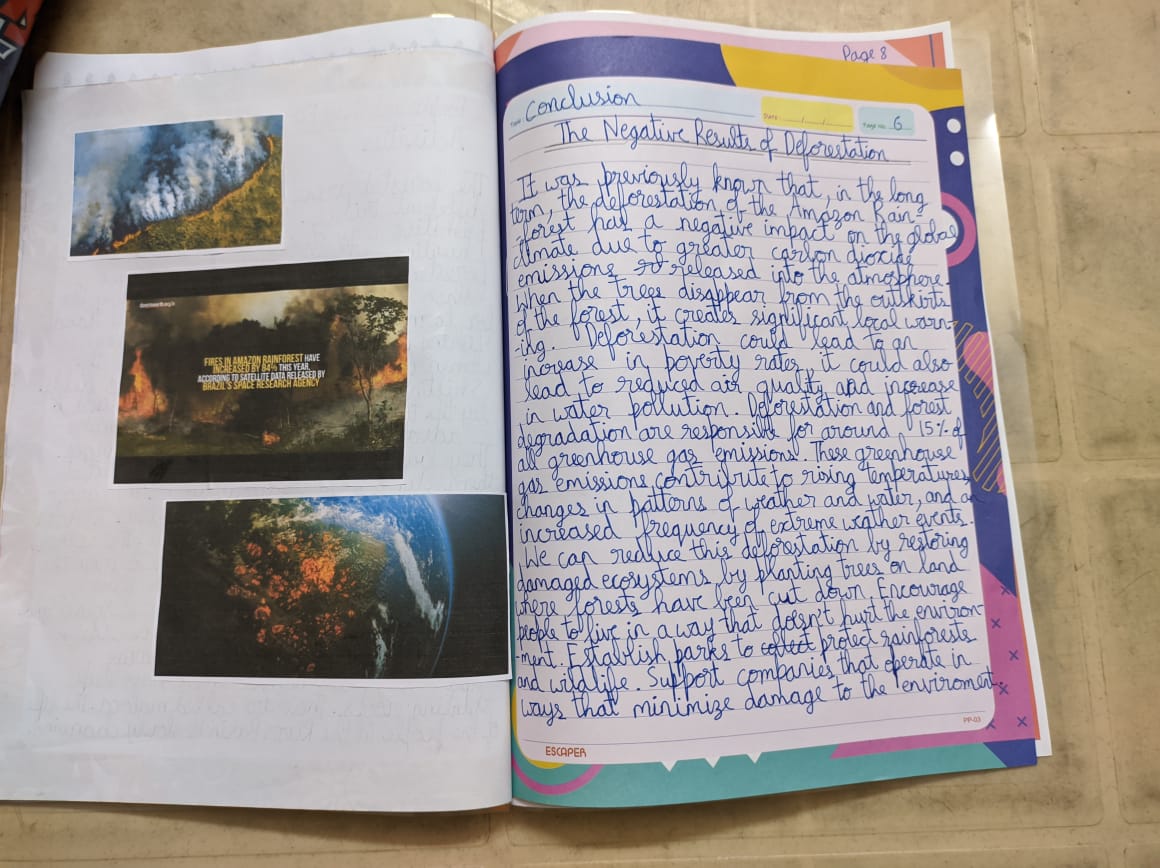 downtoearth.org.in
FIRES IN AMAZON RAINFOREST HAVE
INCREASED BY 84% THIS YEAR,
ACCORDING TO SATELLITE DATA RELEASED BY
BRAZIL'S SPACE RESEARCH AGENCY
Page 8
Conclusion
Date: __/__/__
Page No. 6
The Negative Results of Deforestation
It was previously known that, in the long
term, the deforestation of the Amazon Rain-
forest has a negative impact on the global
climate due to greater carbon dioxide
emissions released into the atmosphere.
When the trees disappear from the outskirts
of the forest, it creates significant local warn-
-ing. Deforestation could lead to an
increase in poverty rates, it could also
lead to reduced air quality and increase
in water pollution. Deforestation and forest
degradation are responsible for around 15% of
all greenhouse gas emissions. These greenhouse
gas emissions contribute to rising temperatures,
changes in patterns of weather and water, and an
increased frequency of extreme weather events.
We can reduce this deforestation by restoring
damaged ecosystems by planting trees on land
where forests have been cut down. Encourage
people to live in a way that doesn't hurt the environ-
-ment. Establish parks to collect protect rainforests
and wildlife. Support companies that operate in
ways that minimize damage to the enviroment.
PP-03
ESCAPER